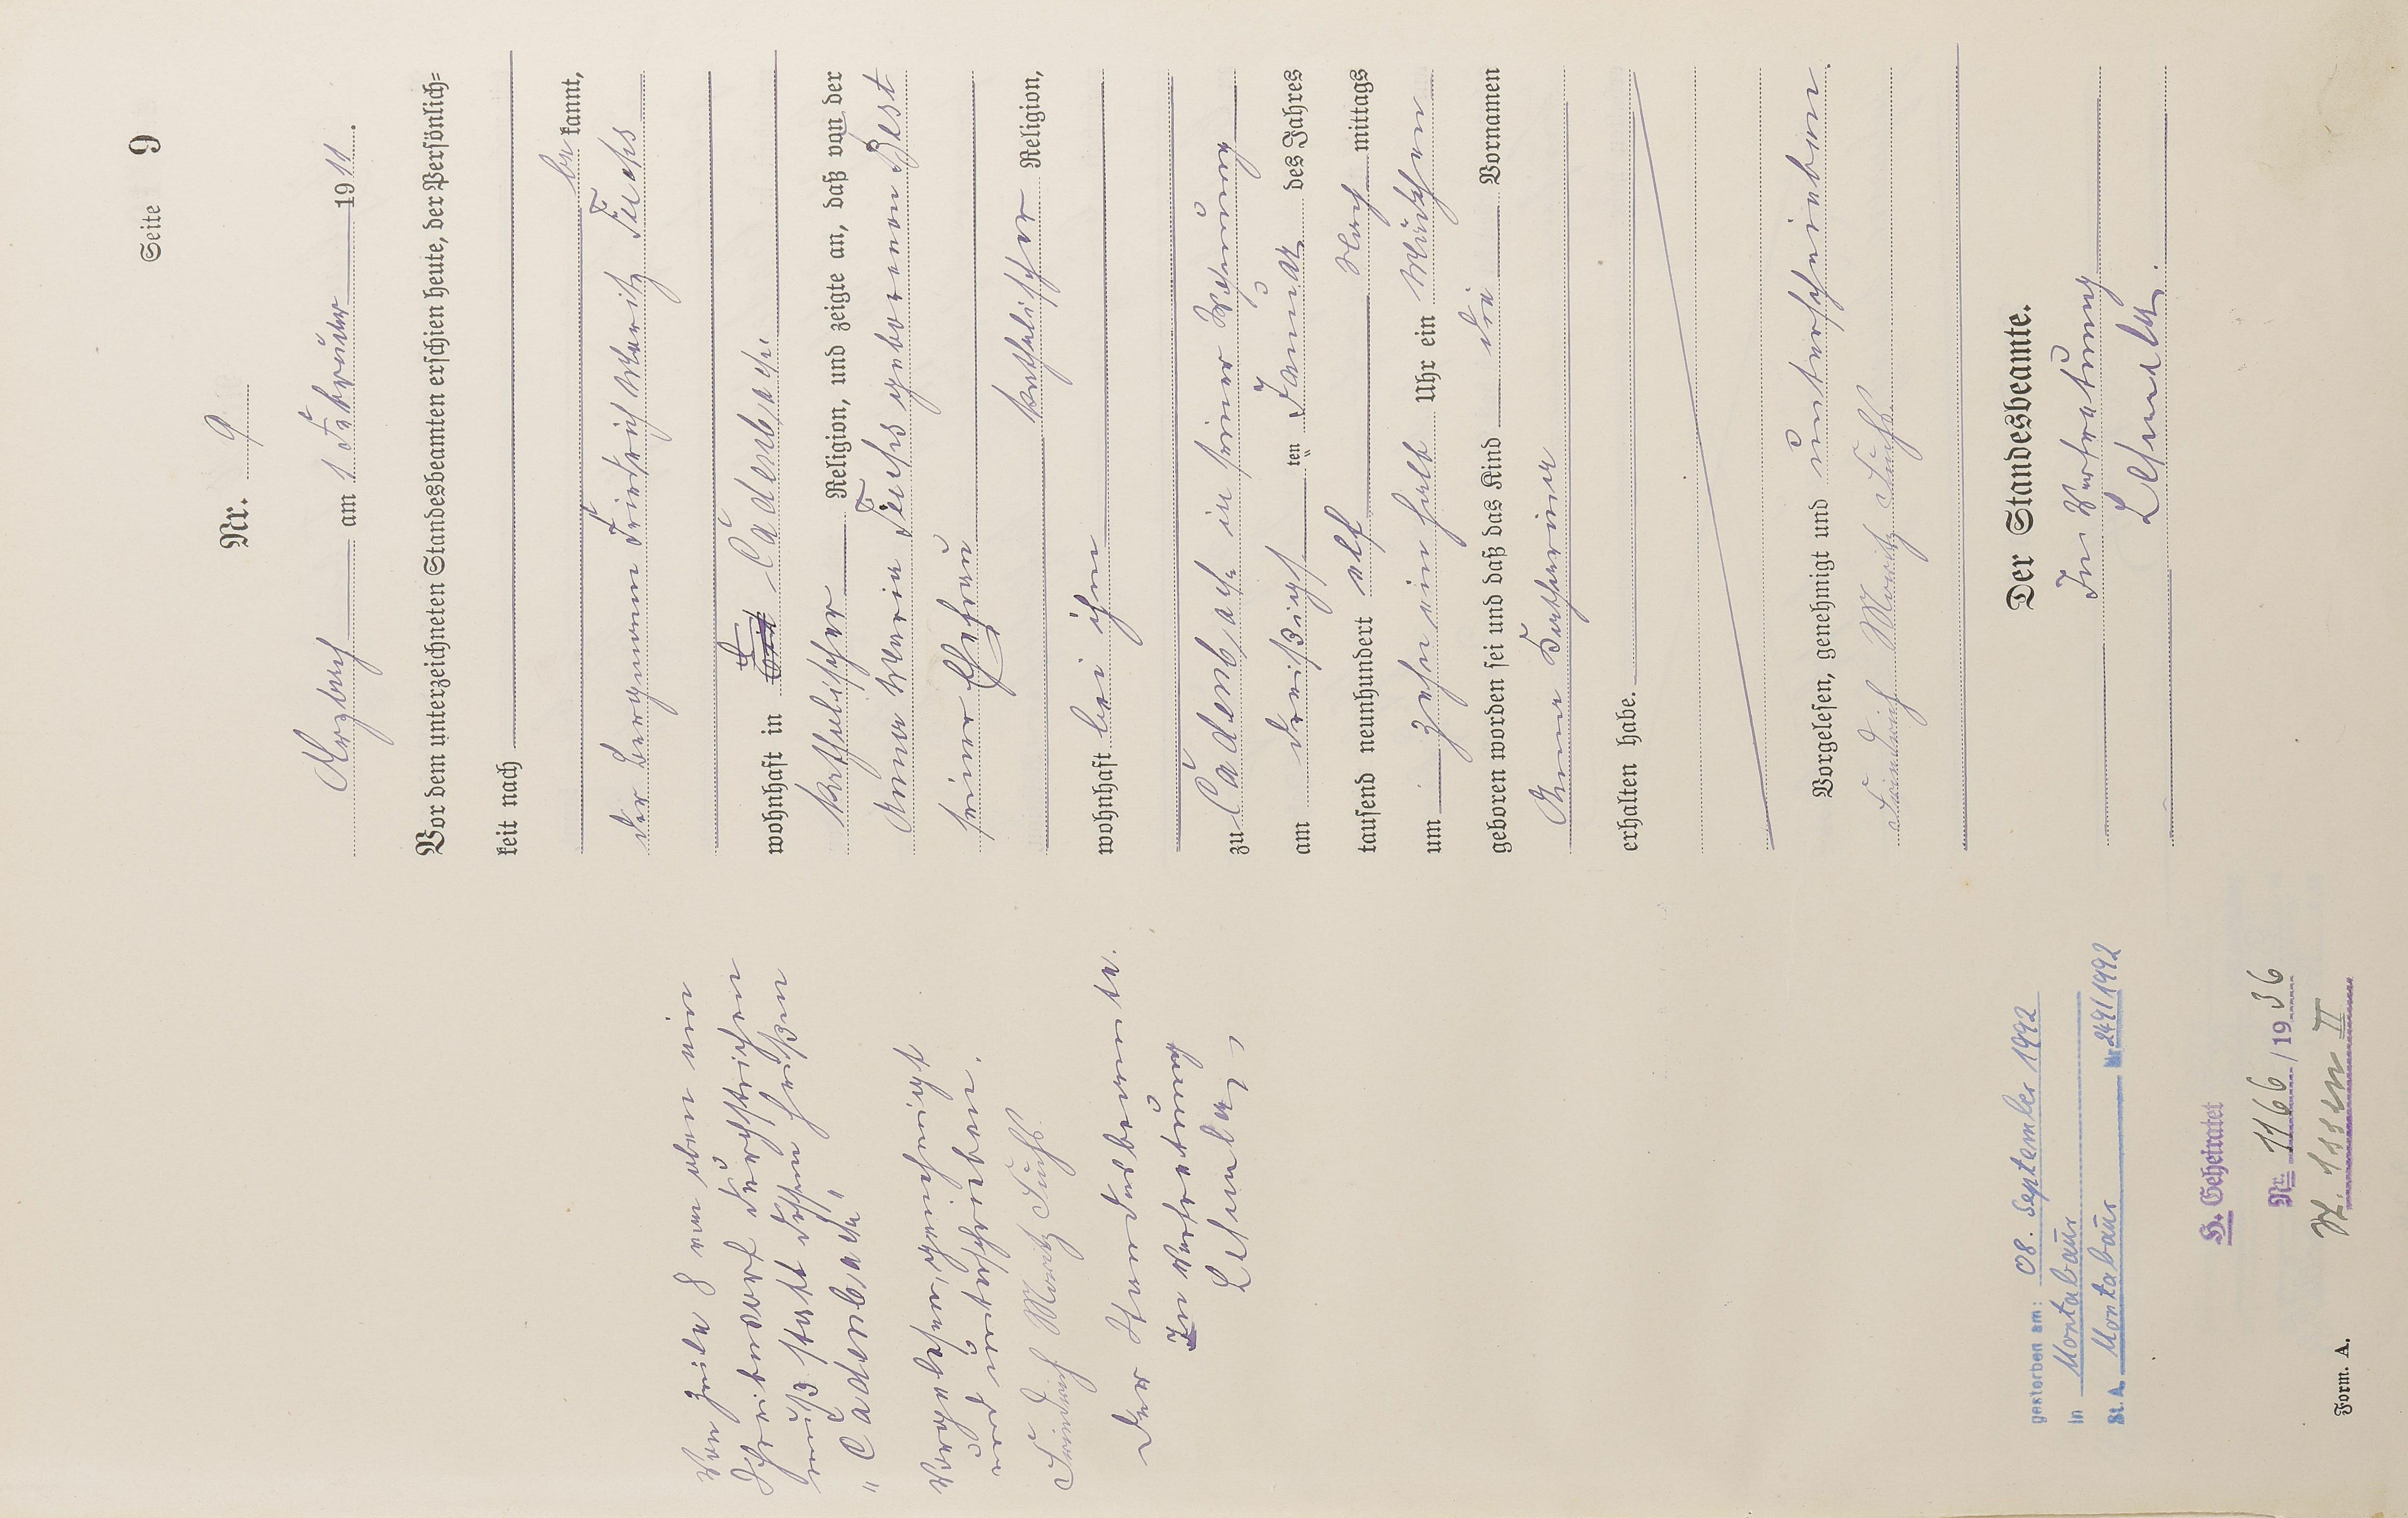 Seite 9
Nr. 9
Arzbach am 1 Februar 1911.
Vor dem unterzeichneten Standesbeamten erschien heute, der Persönlich=
keit nach
be kannt,
der Bergmann Friedrich Moritz Fuchs
wohnhaft in Cadenbach
katholischer Religion, und zeigte an, daß von der
Anna Maria Fuchs geborenen Best
seiner Ehefrau
katholischer Religion,
wohnhaft bei ihm
zu Cadenbach in seiner Wohnung
am dreißigs ten Januar des Jahres
tausend neunhundert elf Nach mittags
um zehn ein halb Uhr ein Mädchen
geboren worden sei und daß das Kind die Vornamen
Anna Katharina
erhalten habe.
Vorgelesen, genehmigt und unterschrieben
Friedrich Moritz Fuchs
Der Standesbeamte.
In Vertretung
Von Zeile 8 von oben ein
Schreibwort durchstrichen
muß statt dessen heißen
"Cadenbach"
Vorgelesen, genehmigt
und unterschrieben.
Friedrich Moritz Fuchs.
Der Standesbeamte.
In Vertretung
gestorben am: 08. September 1992
in Montabaur
St. A. Montabaur Nr. 249/1992
H. Geheiratet
Nr. 1166/1936
St. Essen II
Form. A.